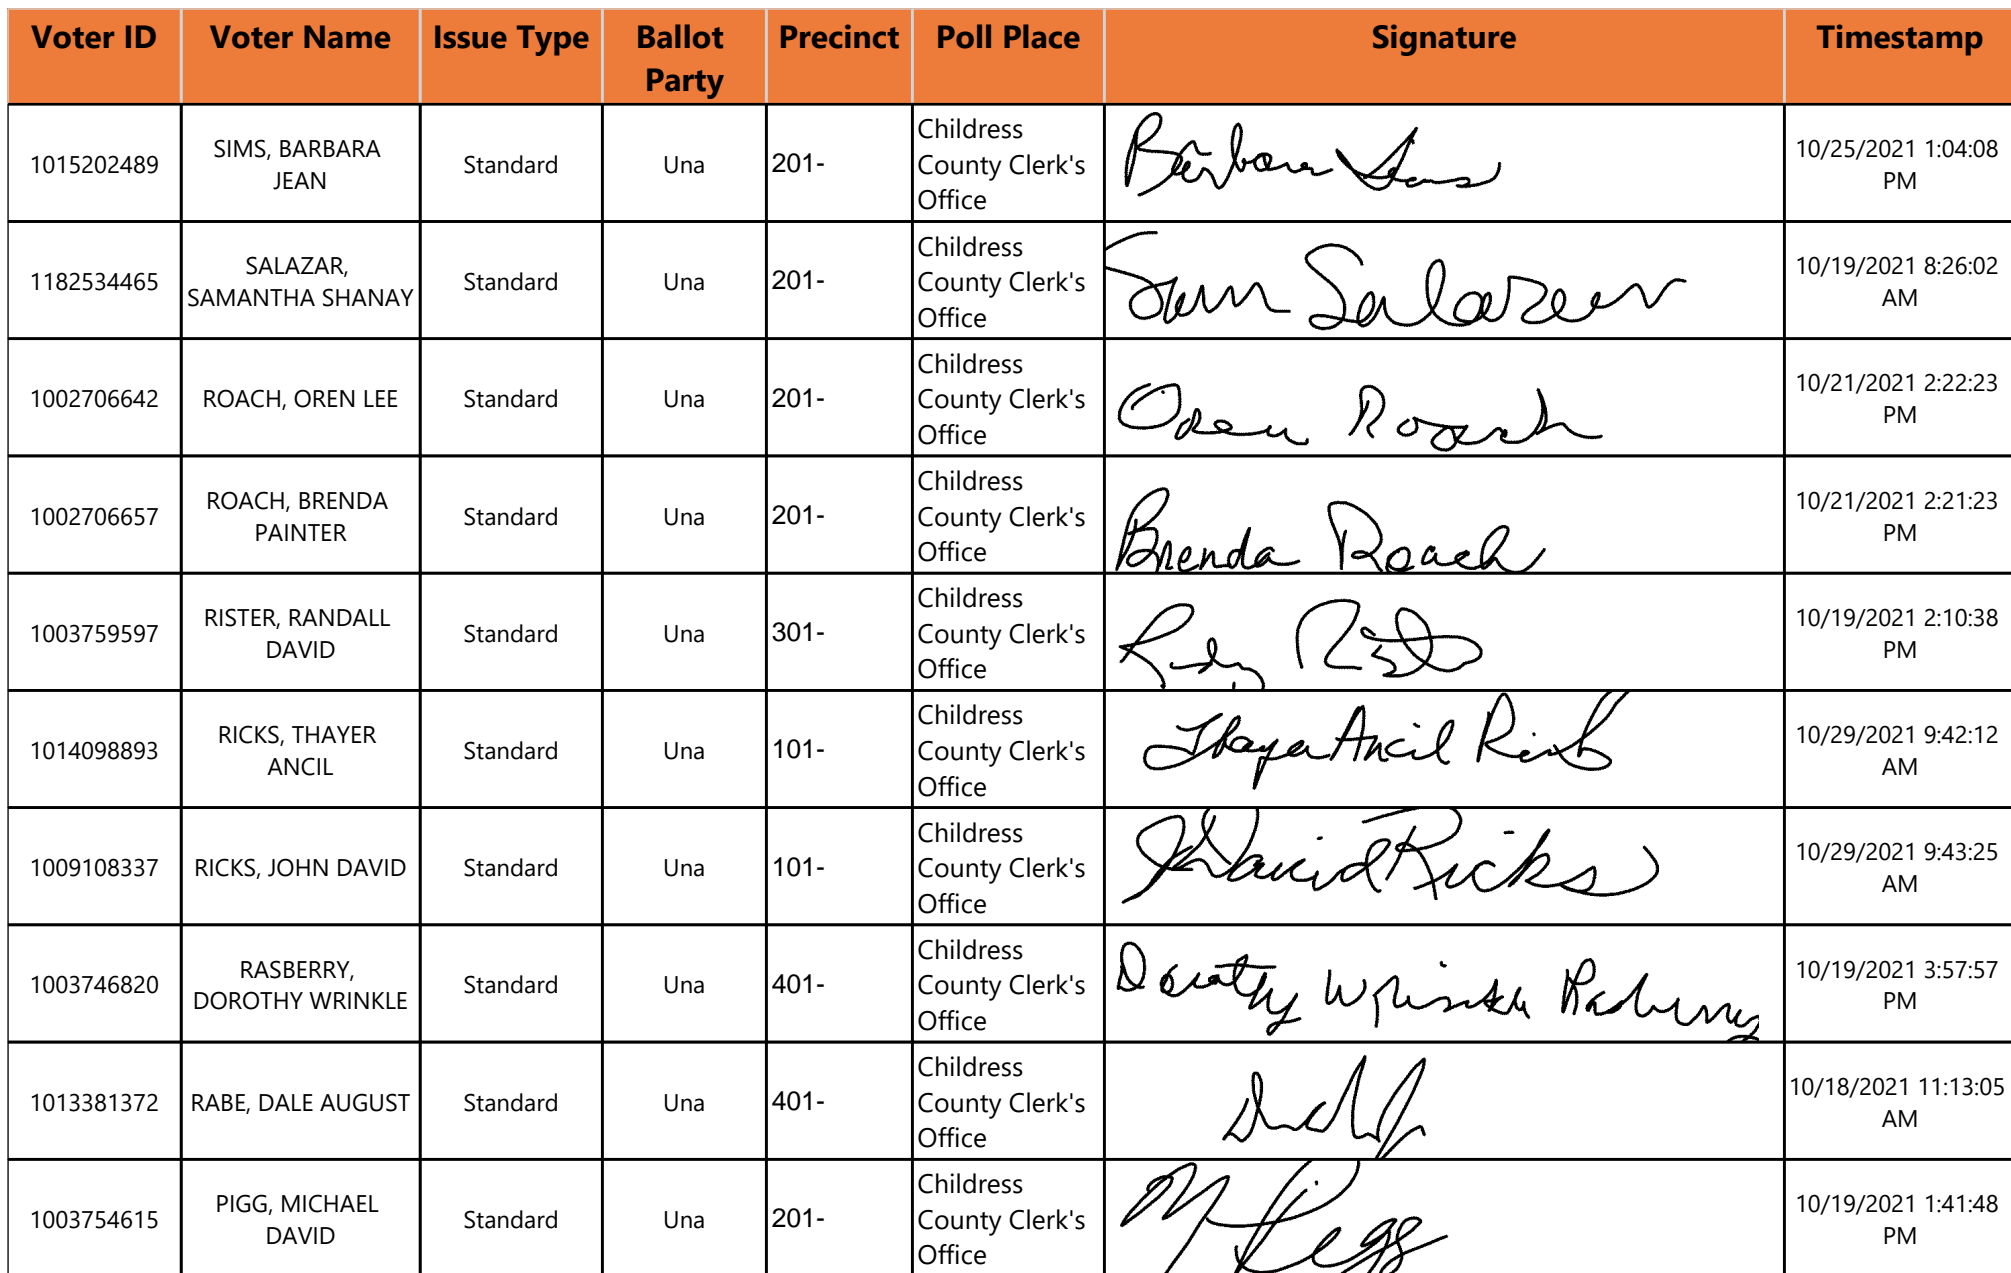 Voter ID Voter Name Issue Type Ballot Party Precinct Poll Place Signature Timestamp
1015202489 SIMS, BARBARA JEAN Standard Una 201- Childress County Clerk's Office Barbara Sims 10/25/2021 1:04:08 PM
1182534465 SALAZAR, SAMANTHA SHANAY Standard Una 201- Childress County Clerk's Office Sam Salazar 10/19/2021 8:26:02 AM
1002706642 ROACH, OREN LEE Standard Una 201- Childress County Clerk's Office Oren Roach 10/21/2021 2:22:23 PM
1002706657 ROACH, BRENDA PAINTER Standard Una 201- Childress County Clerk's Office Brenda Roach 10/21/2021 2:21:23 PM
1003759597 RISTER, RANDALL DAVID Standard Una 301- Childress County Clerk's Office 10/19/2021 2:10:38 PM
1014098893 RICKS, THAYER ANCIL Standard Una 101- Childress County Clerk's Office Thayer Ancil Ricks 10/29/2021 9:42:12 AM
1009108337 RICKS, JOHN DAVID Standard Una 101- Childress County Clerk's Office J David Ricks 10/29/2021 9:43:25 AM
1003746820 RASBERRY, DOROTHY WRINKLE Standard Una 401- Childress County Clerk's Office Dorothy Wrinkle Rasberry 10/19/2021 3:57:57 PM
1013381372 RABE, DALE AUGUST Standard Una 401- Childress County Clerk's Office 10/18/2021 11:13:05 AM
1003754615 PIGG, MICHAEL DAVID Standard Una 201- Childress County Clerk's Office M Pigg 10/19/2021 1:41:48 PM